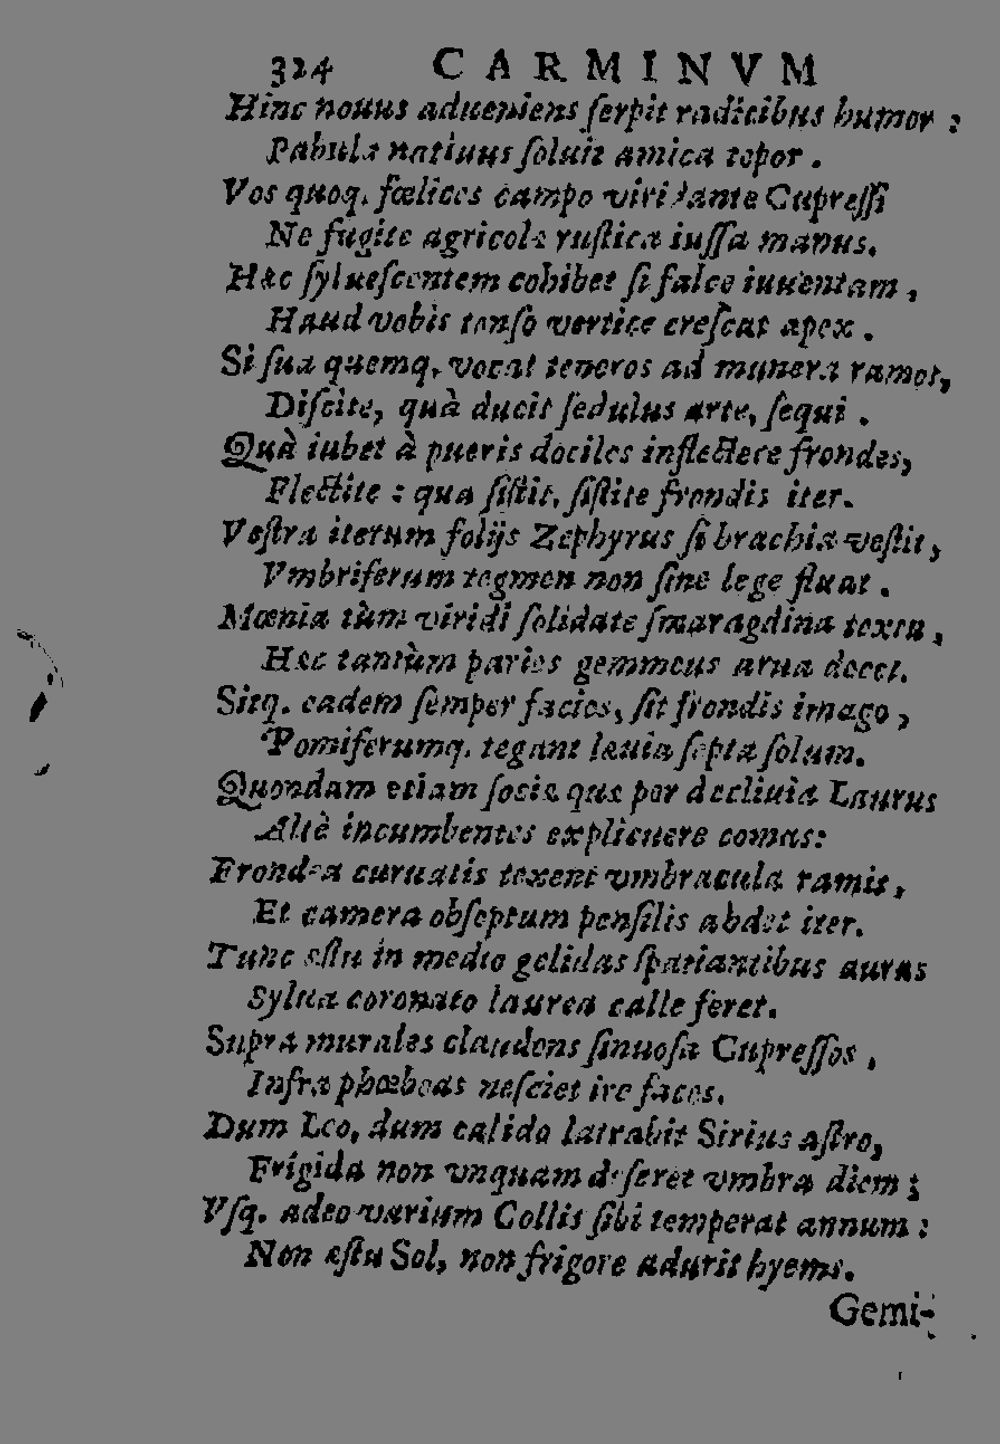 324 CARMINVM
Hinc nouus adueniens ſerpit radicibus humor :
Pabula natiuus ſoluit amica tepor .
Vos quoq. fœlices campo viridante Cupreſſi
Ne fugite agricolæ ruſtica iuſſa manus.
Hæc ſylueſcentem cohibet ſi falce iuuentam ,
Haud vobis tonſo vertice creſcat apex .
Si ſua quemq. vocat teneros ad munera ramos,
Diſcite, quà ducit ſedulus arte, ſequi .
Quà iubet à pueris dociles inflectere frondes,
Flectite : qua ſiſtit, ſiſtite frondis iter.
Veſtra iterum folijs Zephyrus ſi brachia veſtit,
Vmbriferum tegmen non ſine lege fluat .
Mœnia tùm viridi ſolidate ſmaragdina textu ,
Hæc tantùm paries gemmeus arua decet.
Sitq. eadem ſemper facies, ſit frondis imago ,
Pomiferumq. tegant leuia ſepta ſolum.
Quondam etiam ſociæ quæ per decliuia Laurus
Altè incumbentes explicuere comas:
Frondea curuatis texent vmbracula ramis,
Et camera obſeptum penſilis abdet iter.
Tunc æſtu in medio gelidas ſpatiantibus auras
Sylua coronato laurea calle feret.
Supra murales claudens ſinuoſa Cupreſſos ,
Infra phœbeas neſciet ire faces.
Dum Leo, dum calido latrabit Sirius aſtro,
Frigida non vnquam deſeret vmbra diem ;
Vſq. adeo varium Collis ſibi temperat annum :
Non æſtu Sol, non frigore adurit hyems.
Gemi-